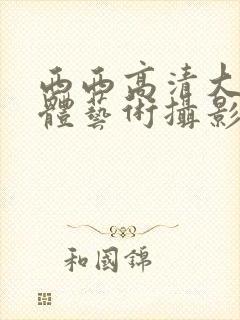 西西高清大
體藝術攝影
和國錦